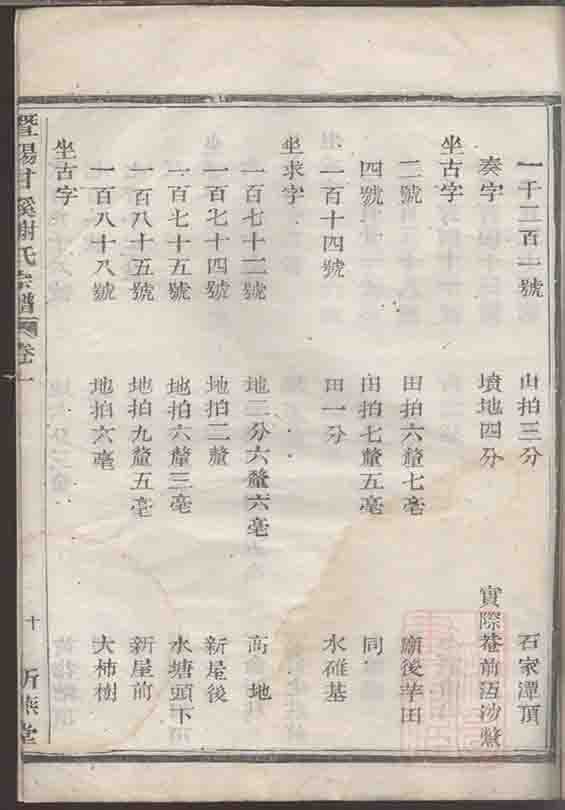 一千二百一號 山拍三分 石家潭頂
奏字 墳地四分 實際菴前沍沙
坐古字
二號 田拍六釐七毫 廟後芋田
四號 田拍七釐五毫 同
一百十四號 田一分 水碓基
坐求字
一百七十二號 地二分六釐六毫 高地
一百七十四號 地拍二釐 新屋後
一百七十五號 地拍六釐三毫 水塘頭下
一百八十五號 地拍九釐五毫 新屋前
一百八十八號 地拍六毫 大柿樹
坐古字
暨陽甘溪謝氏宗譜 卷一 十